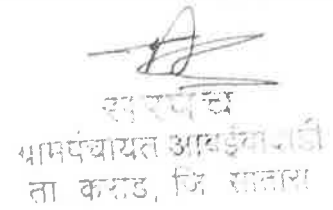 सरपंच
ग्रामपंचायत
ता कराड, जि सातारा